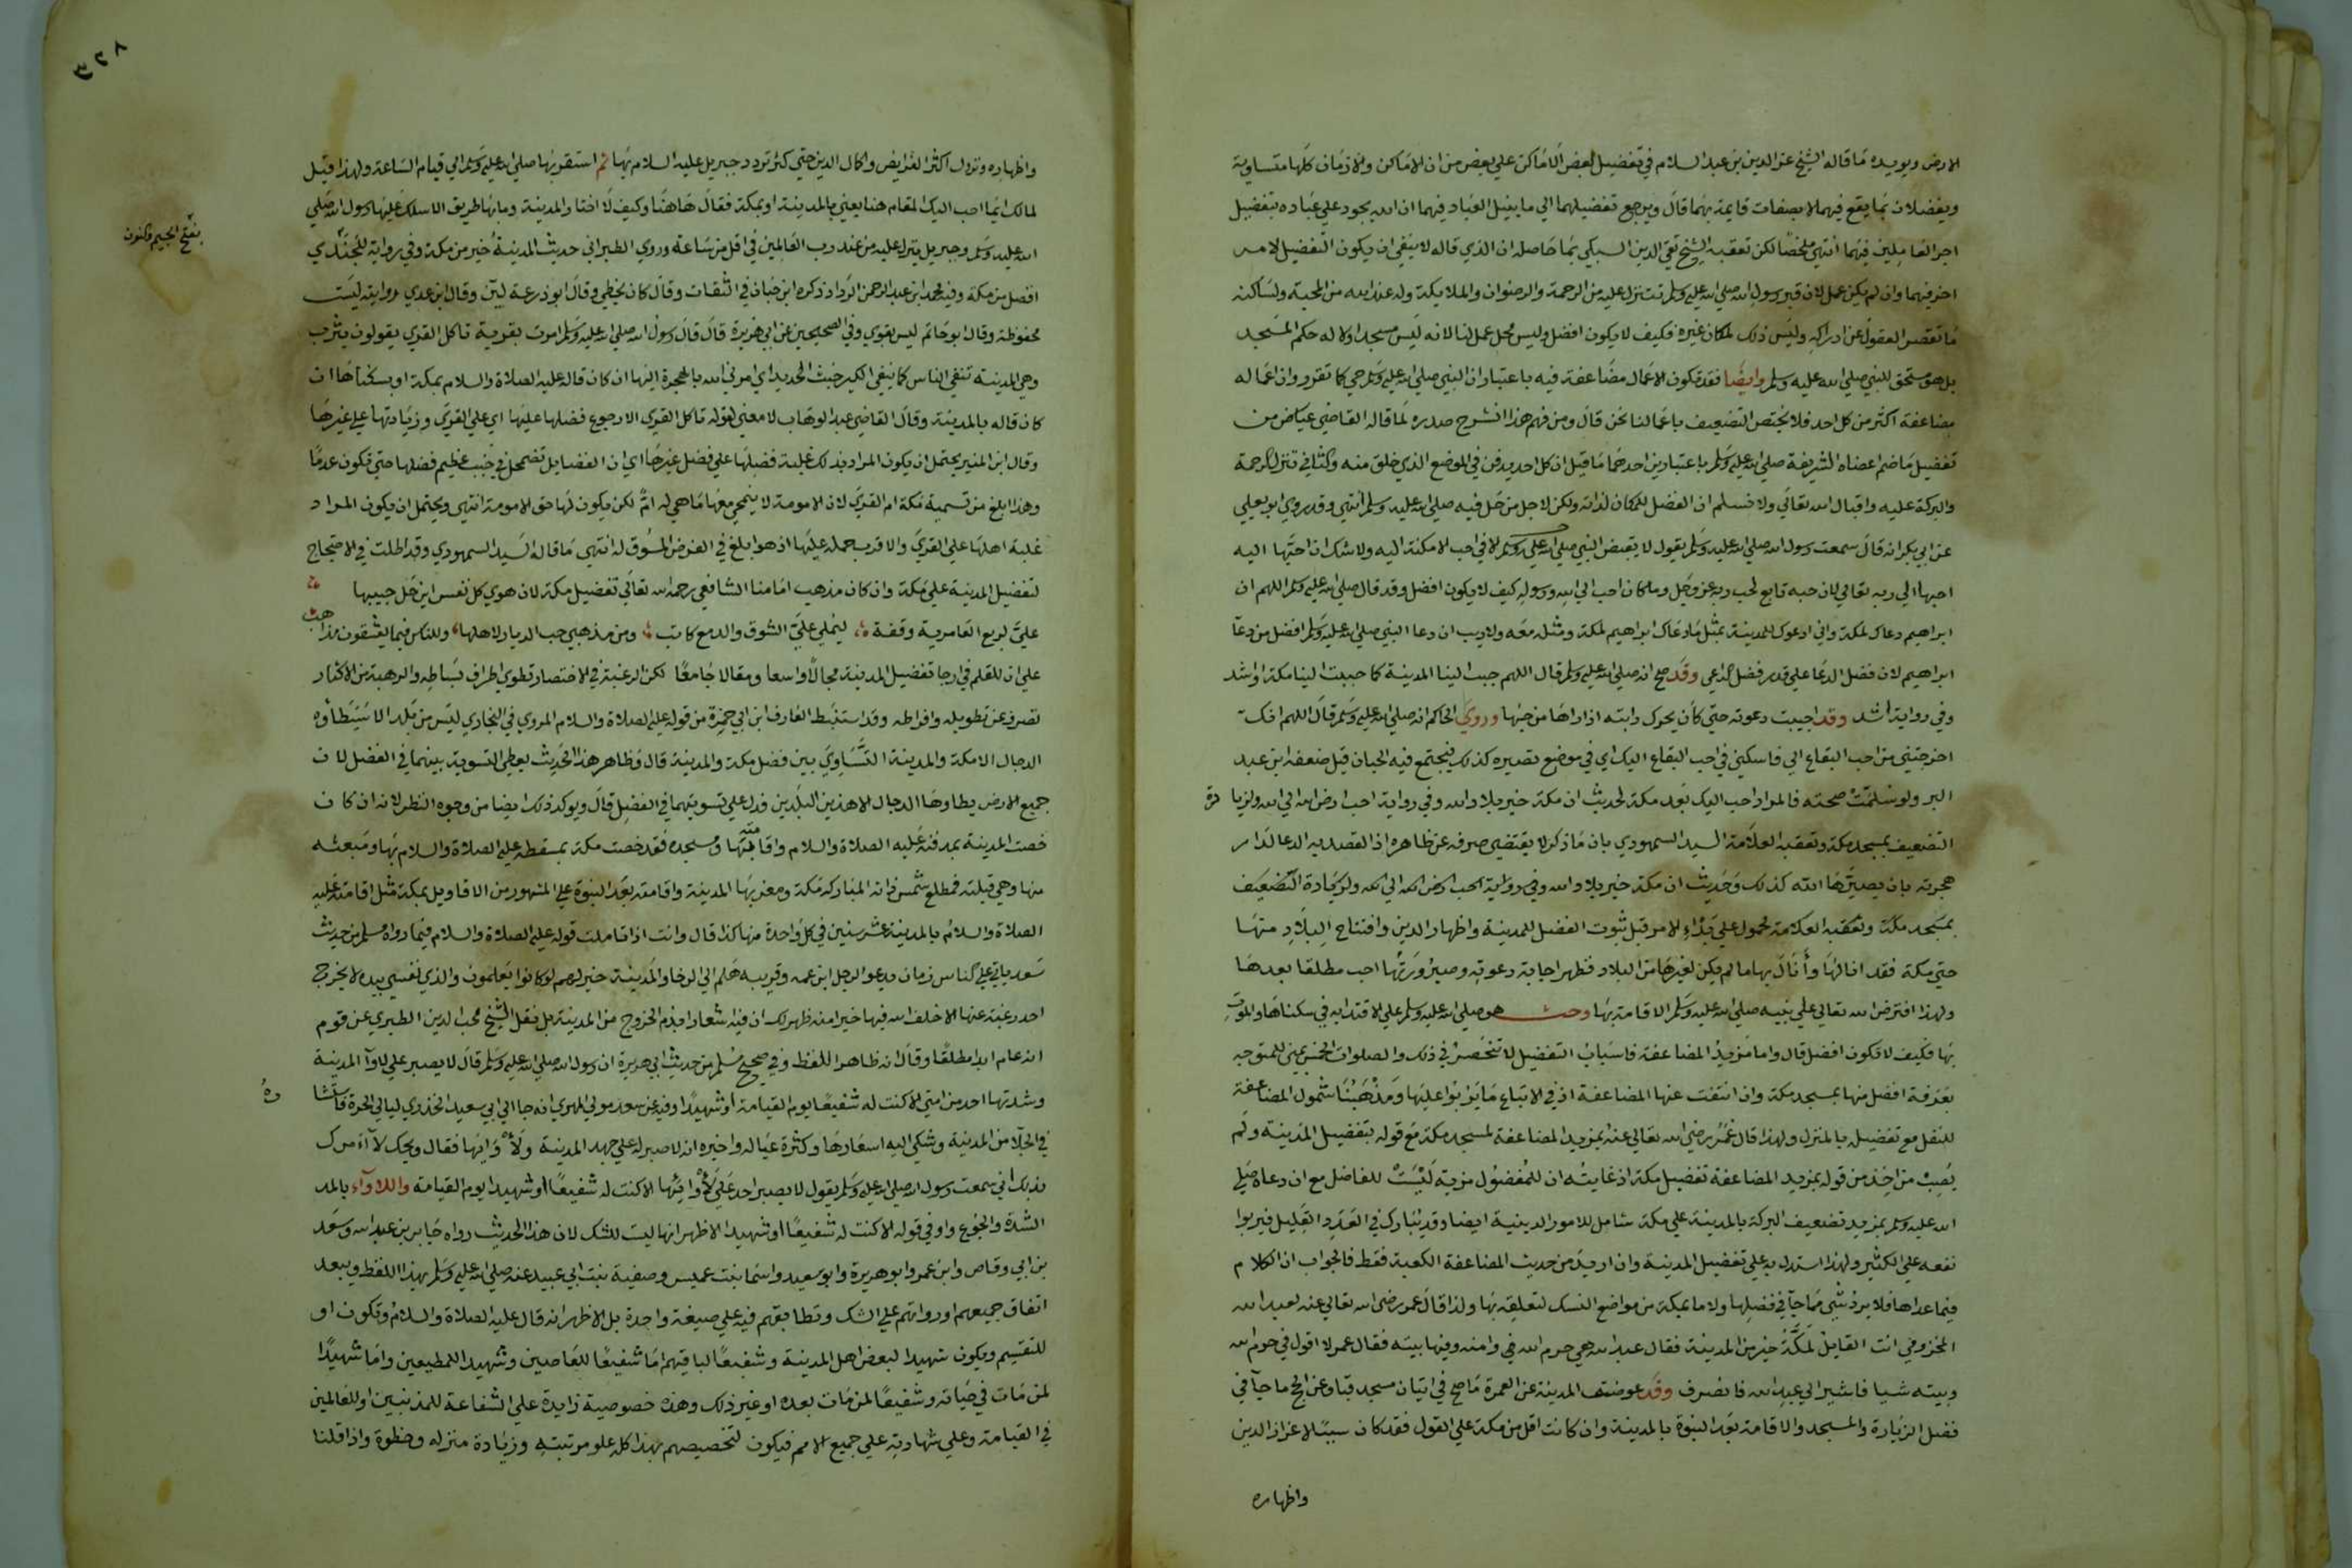 الارض ويويده ما قاله الشيخ عز الدين بن عبد السلام في تفضيل بعض الاماكن علي بعض من ان الاماكن والازمان كلها متساوية
ويفضلان بما يقع فيهما لا بصفات قايمة بهما قال ويرجع تفضيلهما الي ما ينيل العباد فيهما ان الله يجود علي عباده بتفضيل
اجر العاملين فيهما انتهي ملخصا لكن تعقبه الشيخ تقي الدين السبكي بما حاصله ان الذي قاله لا ينفي ان يكون التفضيل لامر
اخر فيهما وان لم يكن عمل لان قبر رسول الله صلي الله عليه وسلم تتنزل عليه من الرحمة والرضوان والملايكة وله عند الله من المحبة ولساكنه
ما تقصر العقول عن ادراكه وليس ذلك لمكان غيره فكيف لا يكون افضل وليس محل عمل لنا لانه ليس مسجدا ولا له حكم المسجد
بل هو مستحق للنبي صلي الله عليه وسلم وايضا فقد تكون الاعمال مضاعفة فيه باعتبار ان النبي صلي الله عليه وسلم حي كما تقرر وان اعماله
مضاعفة اكثر من كل احد فلا يختص التضعيف باعمالنا نحن قال ومن فهم هذا انشرح صدره لما قاله القاضي عياض من
تفضيل ما ضم اعضاه الشريفة صلي الله عليه وسلم باعتبارين احدهما ما قيل ان كل احد يدفن في الموضع الذي خلق منه والثاني تنزل الرحمة
والبركة عليه واقبال الله تعالي ولا نسلم ان الفضل للمكان لذاته ولكن لاجل من حل فيه صلي الله عليه وسلم انتهي وقد روي ابو يعلي
عن ابي بكر انه قال سمعت رسول الله صلي الله عليه وسلم يقول لا يقبض النبي صلي الله عليه وسلم الا في احب الامكنة اليه ولا شك ان احبها اليه
احبها الي ربه تعالي لان حبه تابع لحب ربه عز وجل وما كان احب الي الله ورسوله كيف لا يكون افضل وقد قال صلي الله عليه وسلم اللهم ان
ابراهيم دعاك لمكة واني ادعوك للمدينة بمثل ما دعاك ابراهيم لمكة ومثله معه ولا ريب ان دعا النبي صلي الله عليه وسلم افضل من دعآ
ابراهيم لان فضل الدعا علي قدر فضل الداعي وقد صح انه صلي الله عليه وسلم قال اللهم حبب الينا المدينة كما حببت الينا مكة او اشد
وفي رواية اشد وقد اجيبت دعوته حتي كان يحرك دابته اذا راها من حبها وروي الحاكم انه صلي الله عليه وسلم قال اللهم انك
اخرجتني من احب البقاع الي فاسكني في احب البقاع اليك اي في موضع تصيره كذلك فيجتمع فيه الحبان قيل ضعفه ابن عبد
البر ولو سلمت صحته فالمراد احب اليك بعد مكة لحديث ان مكة خير بلاد الله وفي رواية احب ارض الله الي الله ولزيا دة
التضعيف بمسجد مكة وتعقبه العلامة السيد السمهودي بان ما ذكر لا يقتضي صرفه عن ظاهره اذ القصد به الدعا لدار
هجرته بان يصيرها الله كذلك وحديث ان مكة خير بلاد الله وفي رواية احب ارض الله الي الله ولزيادة التضعيف
بمسجد مكة وتعقبه العلامة محمول علي بدء الامر قبل ثبوت الفضل للمدينة واظهار الدين وافتتاح البلاد منها
حتي مكة فقد انالها وأنال بها ما لم يكن لغيرها من البلاد فظهر اجابة دعوته وصيرورتها احب مطلقا بعدها
ولهذا افترض الله تعالي علي نبيه صلي الله عليه وسلم الاقامة بها وحث هو صلي الله عليه وسلم علي الاقتدا به في سكناها والموت
بها فكيف لا تكون افضل قال واما مزيد المضاعفة فاسباب التفضيل لا تنحصر في ذلك والصلوات الخمس بمني للمتوجه
بعرفة افضل منها بمسجد مكة وان انتفت عنها المضاعفة اذ في الاتباع ما يربوا عليها ومذهبنا شمول المضاعفة
للنفل مع تفضيله بالمنزل ولهذا قال عمر رضي الله تعالي عنه بمزيد المضاعفة لمسجد مكة مع قوله بتفضيل المدينة ولم
يصب من اخذ من قوله بمزيد المضاعفة تفضيل مكة اذ غايته ان للمفضول مزية ليست للفاضل مع ان دعاه صلي
الله عليه وسلم بمزيد تضعيف البركة بالمدينة علي مكة شامل للامور الدينية ايضا وقد يبارك في العدد القليل فيربوا
نفعه علي الكثير ولهذا استدل به علي تفضيل المدينة وان اريد من حديث المضاعفة الكعبة فقط فالجواب ان الكلام
فيما عداها فلا يرد شي مما جآ في فضلها ولا ما بمكة من مواضع النسك لتعلقه بها ولذا قال عمر رضي الله تعالي عنه لعبد الله
المخزومي انت القايل لمكة خير من المدينة فقال عبد الله هي حرم الله وامنه وفيها بيته فقال عمر لا اقول في حرم الله
وبيته شيا فاشير الي عبد الله فانصرف وقد عوضت المدينة عن العمرة ما صح في اتيان مسجد قبا وعن الحج ما جآ في
فضل الزيارة والمسجد والاقامة بعد النبوة بالمدينة وان كانت اقل من مكة علي القول فقد كان سببا لاعزاز الدين
واظهاره
واظهاره ونزول اكثر الفرايض واكمال الدين حتي كثر تردد جبريل عليه السلام بها ثم استقر بها صلي الله عليه وسلم الي قيام الساعة ولهذا قيل
لمالك ايما احب اليك المقام هنا يعني بالمدينة او بمكة فقال هاهنا وكيف لا اختار المدينة وما بها طريق الا سلك عليها رسول الله صلي
الله عليه وسلم وجبريل ينزل عليه من عند رب العالمين في اقل من ساعة وروي الطبراني حديث المدينة خير من مكة وفي رواية للجندي
بفتح الجيم والنون
افضل من مكة وفيه محمد ابن عبد الرحمن الرداد ذكره ابن حبان في الثقات وقال كان يخطي وقال ابو زرعة لين وقال ابن عدي روايته ليست
محفوظة وقال ابو حاتم ليس بقوي وفي الصحيحين عن ابي هريرة قال قال رسول الله صلي الله عليه وسلم امرت بقرية تاكل القري يقولون يثرب
وهي المدينة تنفي الناس كما ينفي الكير خبث الحديد اي امرني الله بالهجرة اليها ان كان قاله عليه الصلاة والسلام بمكة او بسكناها ان
كان قاله بالمدينة وقال القاضي عبد الوهاب لا معني لقوله تاكل القري الا رجوع فضلها عليها اي علي القري وزيادتها علي غيرها
وقال ابن المنير يحتمل ان يكون المراد بذلك غلبة فضلها علي فضل غيرها اي ان الفضايل تضمحل في جنب عظيم فضلها حتي تكون عدما
وهذا ابلغ من تسمية مكة ام القري لان الامومة لا ينمحي معها ما هي له ام لكن يكون لها حق الامومة انتهي ويحتمل ان يكون المراد
غلبة اهلها علي القري والاقرب حمله عليها اذ هو ابلغ في الغرض المسوق له انتهي ما قاله السيد السمهودي وقد اطلت في الاحتجاج
لتفضيل المدينة علي مكة وان كان مذهب امامنا الشافعي رحمه الله تعالي تفضيل مكة لان هوي كل نفس اين حل حبيبها
علي لربع العامرية وقفة ليملي علي الشوق والدمع كاتب ومن مذهبي حب الديار لاهلها وللناس فيما يعشقون مذاهب
علي ان للقلم في ارجا تفضيل المدينة مجالا واسعا ومقالا جامعا لكن الرغبة في الاختصار تطوي اطراف بساطه والرهبة من الاكثار
تصرف عن تطويله وافراطه وقد استنبط العارف ابن ابي جمرة من قوله عليه الصلاة والسلام المروي في البخاري ليس من بلد الا سيطأه
الدجال الا مكة والمدينة التساوي بين فضل مكة والمدينة قال وظاهر هذا الحديث يعطي التسوية بينهما في الفضل لان
جميع الارض يطاوها الدجال الا هذين البلدين فدل علي تسويتهما في الفضل قال ويوكد ذلك ايضا من وجوه النظر لانه ان كان
خصت المدينة بمدفنه عليه الصلاة والسلام واقامته بها ومسجده فقد خصت مكة بمسقطه عليه الصلاة والسلام بها ومبعثه
منها وهي قبلته فمطلع شمس ذاته المباركة مكة ومغربها المدينة واقامته بعد النبوة علي المشهور من الاقاويل بمكة مثل اقامته عليه
الصلاة والسلام بالمدينة عشر سنين في كل واحدة منها كذا قال وانت اذا تاملت قوله عليه الصلاة والسلام فيما رواه مسلم من حديث
سعد ياتي علي الناس زمان يدعو الرجل ابن عمه وقريبه هلم الي الرخا والمدينة خير لهم لو كانوا يعلمون والذي نفسي بيده لا يخرج
احد رغبة عنها الا خلف الله فيها خيرا منه ظهر لك ان فيه شعارا بذم الخروج من المدينة بل نقل الشيخ محب الدين الطبري عن قوم
انه عام ابدا مطلقا وقال انه ظاهر اللفظ وفي صحيح مسلم من حديث ابي هريرة ان رسول الله صلي الله عليه وسلم قال لا يصبر علي لاوآ المدينة
وشدتها احد من امتي الا كنت له شفيعا يوم القيامة او شهيدا وفيه عن سعد مولي المهري انه جا الي ابي سعيد الخدري ليالي الحرة فاستشا ره
في الجلآ من المدينة وشكي اليه اسعارها وكثرة عياله واخبره انه لا صبر له علي جهد المدينة ولأوايها فقال ويحك لا آمرك
بذلك اني سمعت رسول الله صلي الله عليه وسلم يقول لا يصبر احد علي لأوائها الا كنت له شفيعا او شهيدا يوم القيامة واللاوآء بالمد
الشدة والجوع واو في قوله الا كنت له شفيعا او شهيدا الاظهر انها ليست للشك لان هذا الحديث رواه جابر بن عبد الله وسعد
بن ابي وقاص وابن عمر وابو هريرة وابو سعيد واسما بنت عميس وصفية بنت ابي عبيد عنه صلي الله عليه وسلم بهذا اللفظ ويبعد
اتفاق جميعهم او رواتهم علي الشك وتطابقهم فيه علي صيغة واحدة بل الاظهر انه قال عليه الصلاة والسلام وتكون او
للتقسيم ويكون شهيدا لبعض اهل المدينة وشفيعا لباقيهم اما شفيعا للعاصين وشهيدا للمطيعين واما شهيدا
لمن مات في حياته وشفيعا لمن مات بعده او غير ذلك وهذه خصوصية زايدة علي الشفاعة للمذنبين او للعالمين
في القيامة وعلي شهادته علي جميع الامم فيكون لتخصيصهم بهذا كله علو مرتبته وزيادة منزله وحظوة واذا قلنا